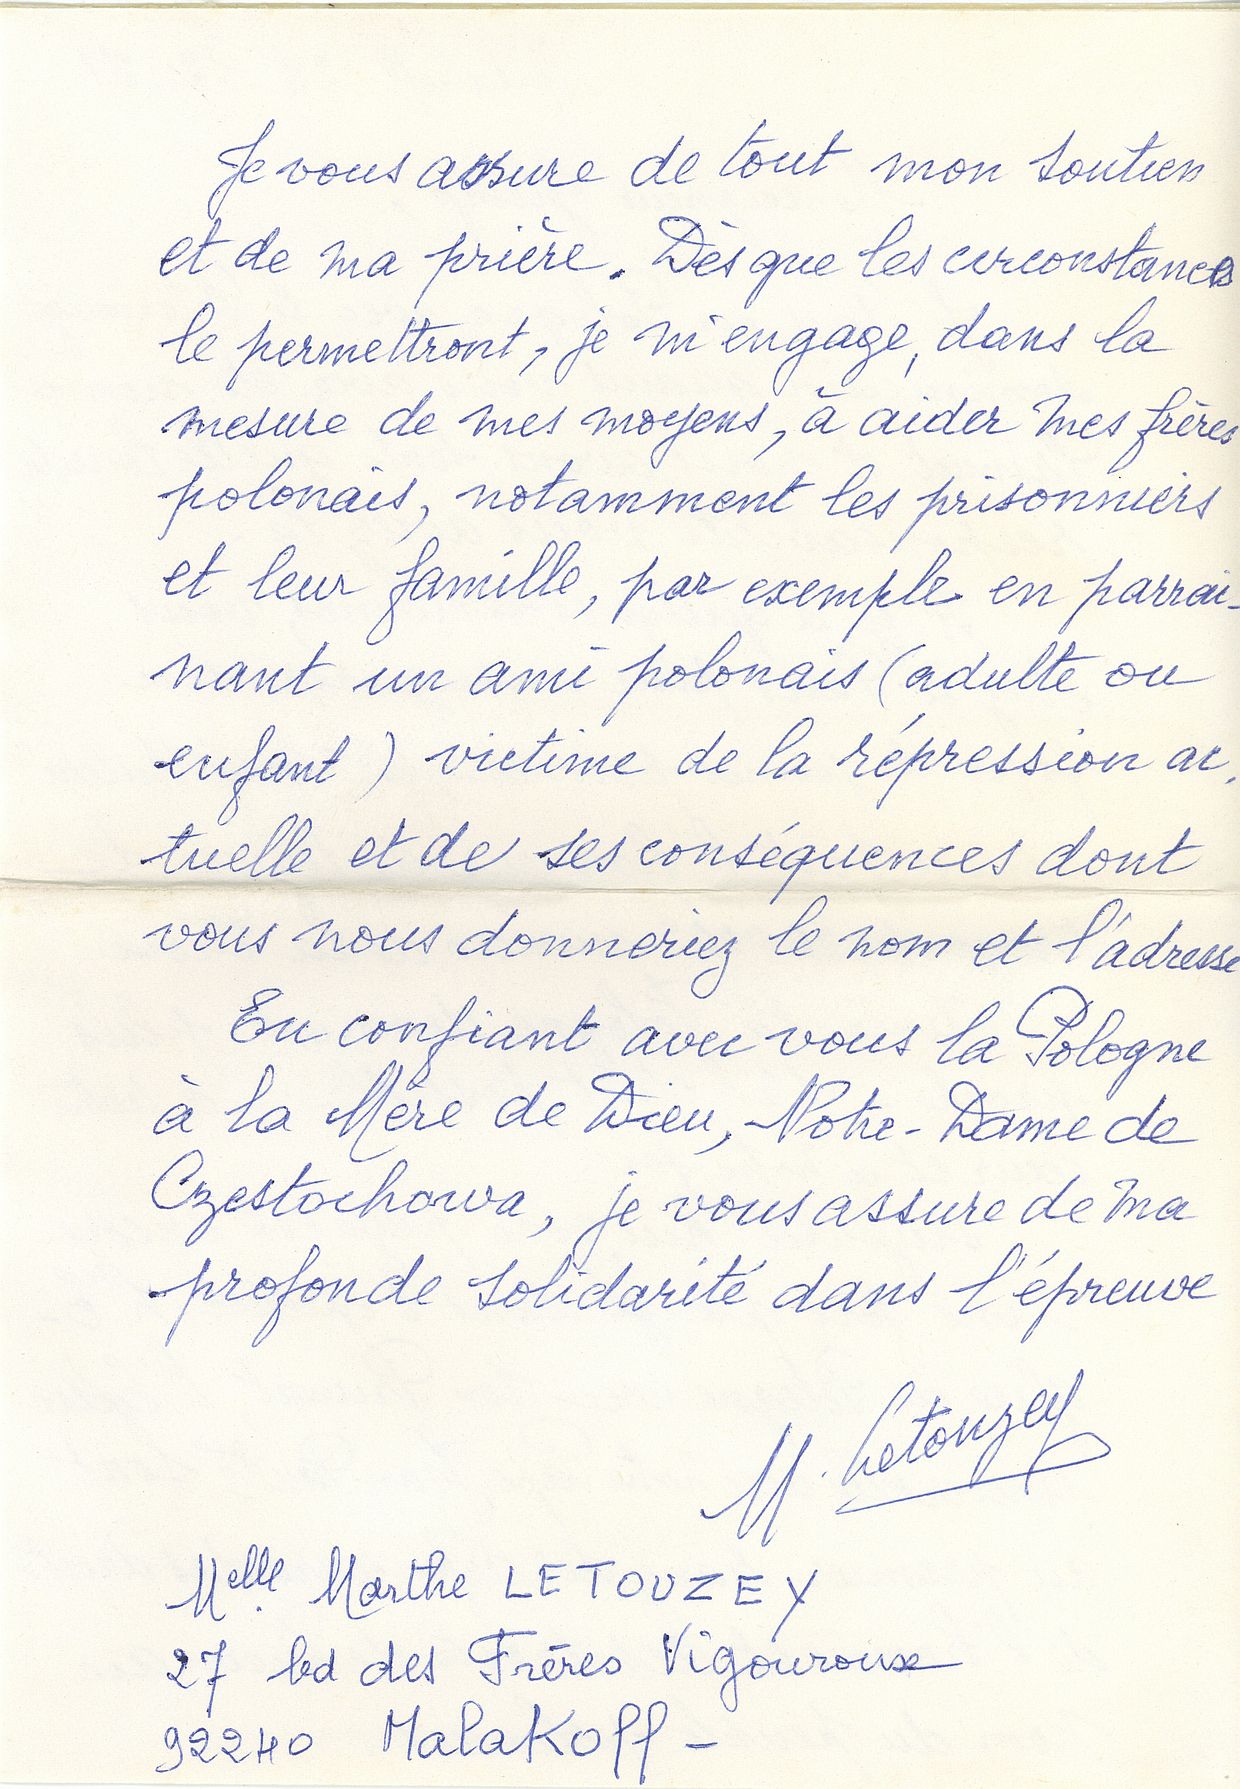 Je vous assure de tout mon soutien
et de ma prière. Dès que les circonstances
le permettront, je m'engage, dans la
mesure de mes moyens, à aider mes frères
polonais, notamment les prisonniers
et leur famille, par exemple en parrai-
nant un ami polonais (adulte ou
enfant) victime de la répression ac-
tuelle et de ses conséquences dont
vous nous donneriez le nom et l'adresse
En confiant avec vous la Pologne
à la Mère de Dieu, Notre-Dame de
Czestochowa, je vous assure de ma
profonde solidarité dans l'épreuve
M. Letouzey
Melle. Marthe LETOUZEY
27 bd des Frères Vigouroux
92240 Malakoff -